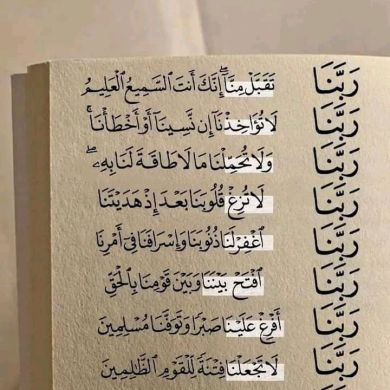 رَبَّنَا تَقَبَّلْ مِنَّآ ۖ إِنَّكَ أَنتَ ٱلسَّمِيعُ ٱلْعَلِيمُ
رَبَّنَا لَا تُؤَاخِذْنَآ إِن نَّسِينَآ أَوْ أَخْطَأْنَا ۚ
رَبَّنَا وَلَا تُحَمِّلْنَا مَا لَا طَاقَةَ لَنَا بِهِۦ ۖ
رَبَّنَا لَا تُزِغْ قُلُوبَنَا بَعْدَ إِذْ هَدَيْتَنَا
رَبَّنَا ٱغْفِرْ لَنَا ذُنُوبَنَا وَإِسْرَافَنَا فِىٓ أَمْرِنَا
رَبَّنَا ٱفْتَحْ بَيْنَنَا وَبَيْنَ قَوْمِنَا بِٱلْحَقِّ
رَبَّنَآ أَفْرِغْ عَلَيْنَا صَبْرًا وَتَوَفَّنَا مُسْلِمِينَ
رَبَّنَا لَا تَجْعَلْنَا فِتْنَةً لِّلْقَوْمِ ٱلظَّٰلِمِينَ